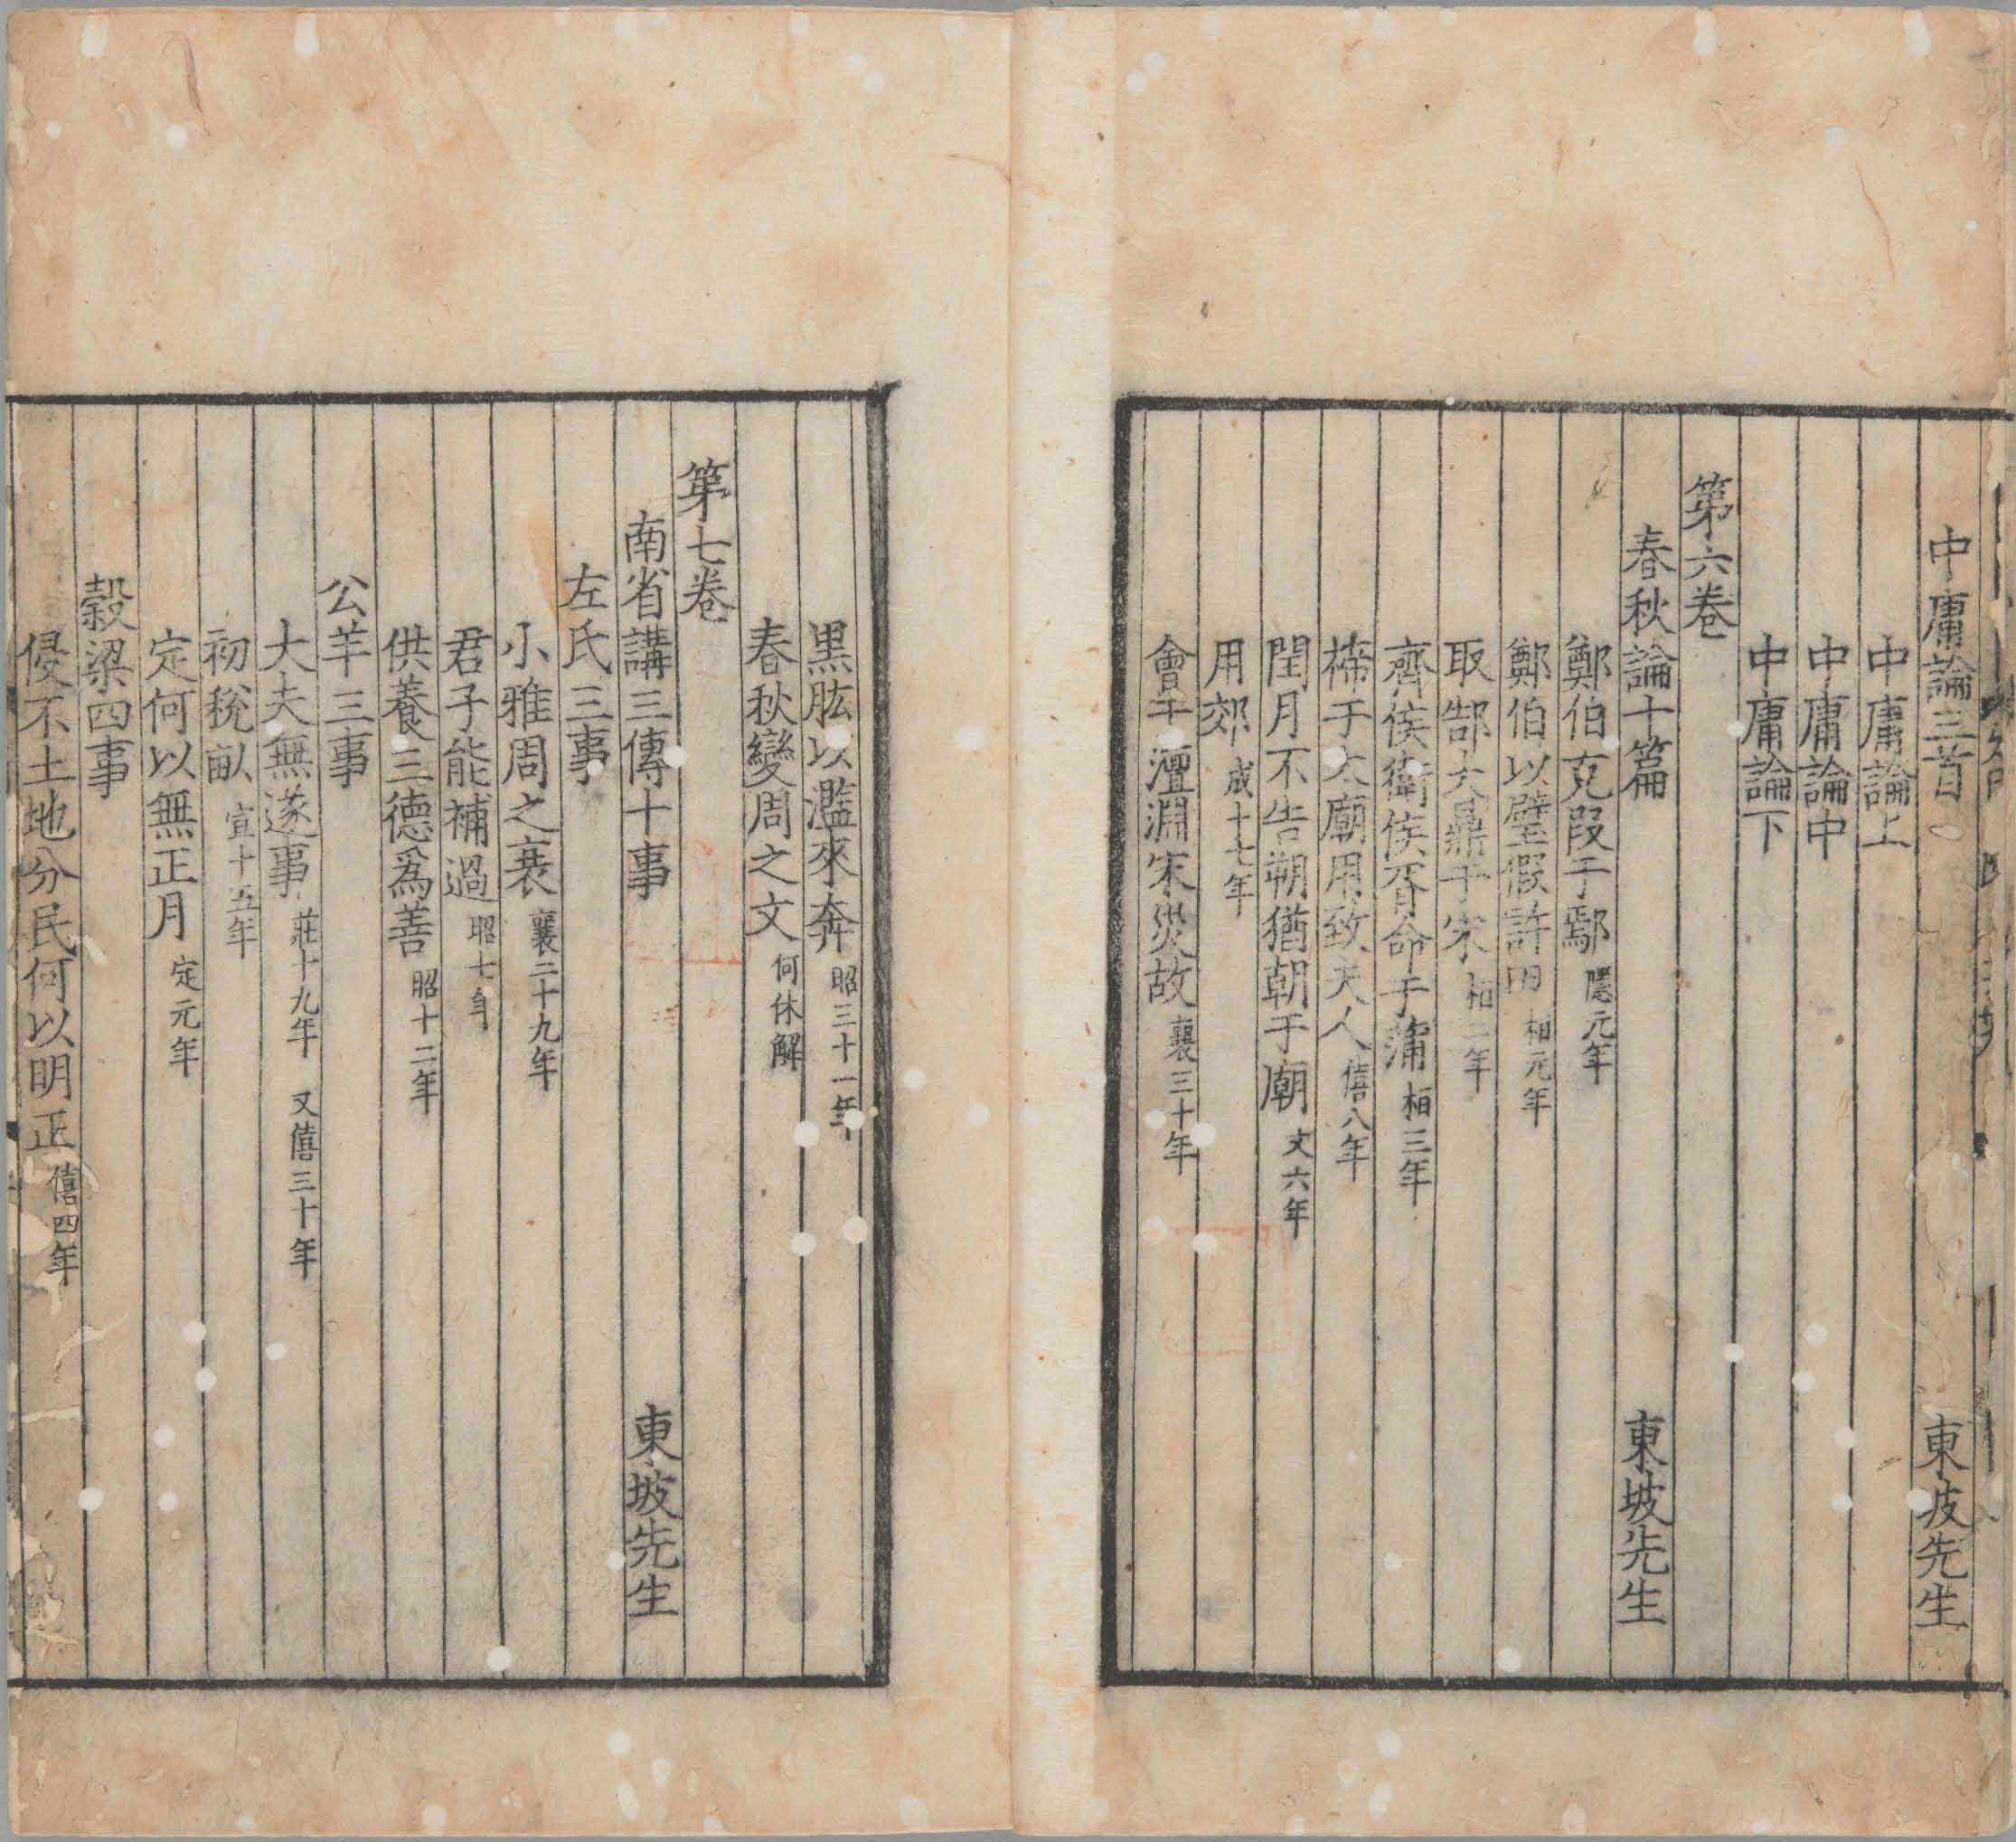 中庸論三首 東坡先生
中庸論上
中庸論中
中庸論下
第六卷
春秋論十篇 東坡先生
鄭伯克段于鄢 隱元年
鄭伯以璧假許田 桓元年
取郜大鼎于宋 桓二年
齊侯衛侯胥命于蒲 桓三年
禘于太廟用致夫人 僖八年
閏月不告朔猶朝于廟 文六年
用郊 成十七年
會于澶淵宋災故 襄三十年
黑肱以濫來奔 昭三十一年
春秋變周之文 何休解
第七卷
南省講三傳十事 東坡先生
左氏三事
小雅周之衰 襄二十九年
君子能補過 昭七年
供養三德爲善 昭十二年
公羊三事
大夫無遂事 莊十九年 又僖三十年
初稅畝 宣十五年
定何以無正月 定元年
穀梁四事
侵不土地分民何以明正 僖四年